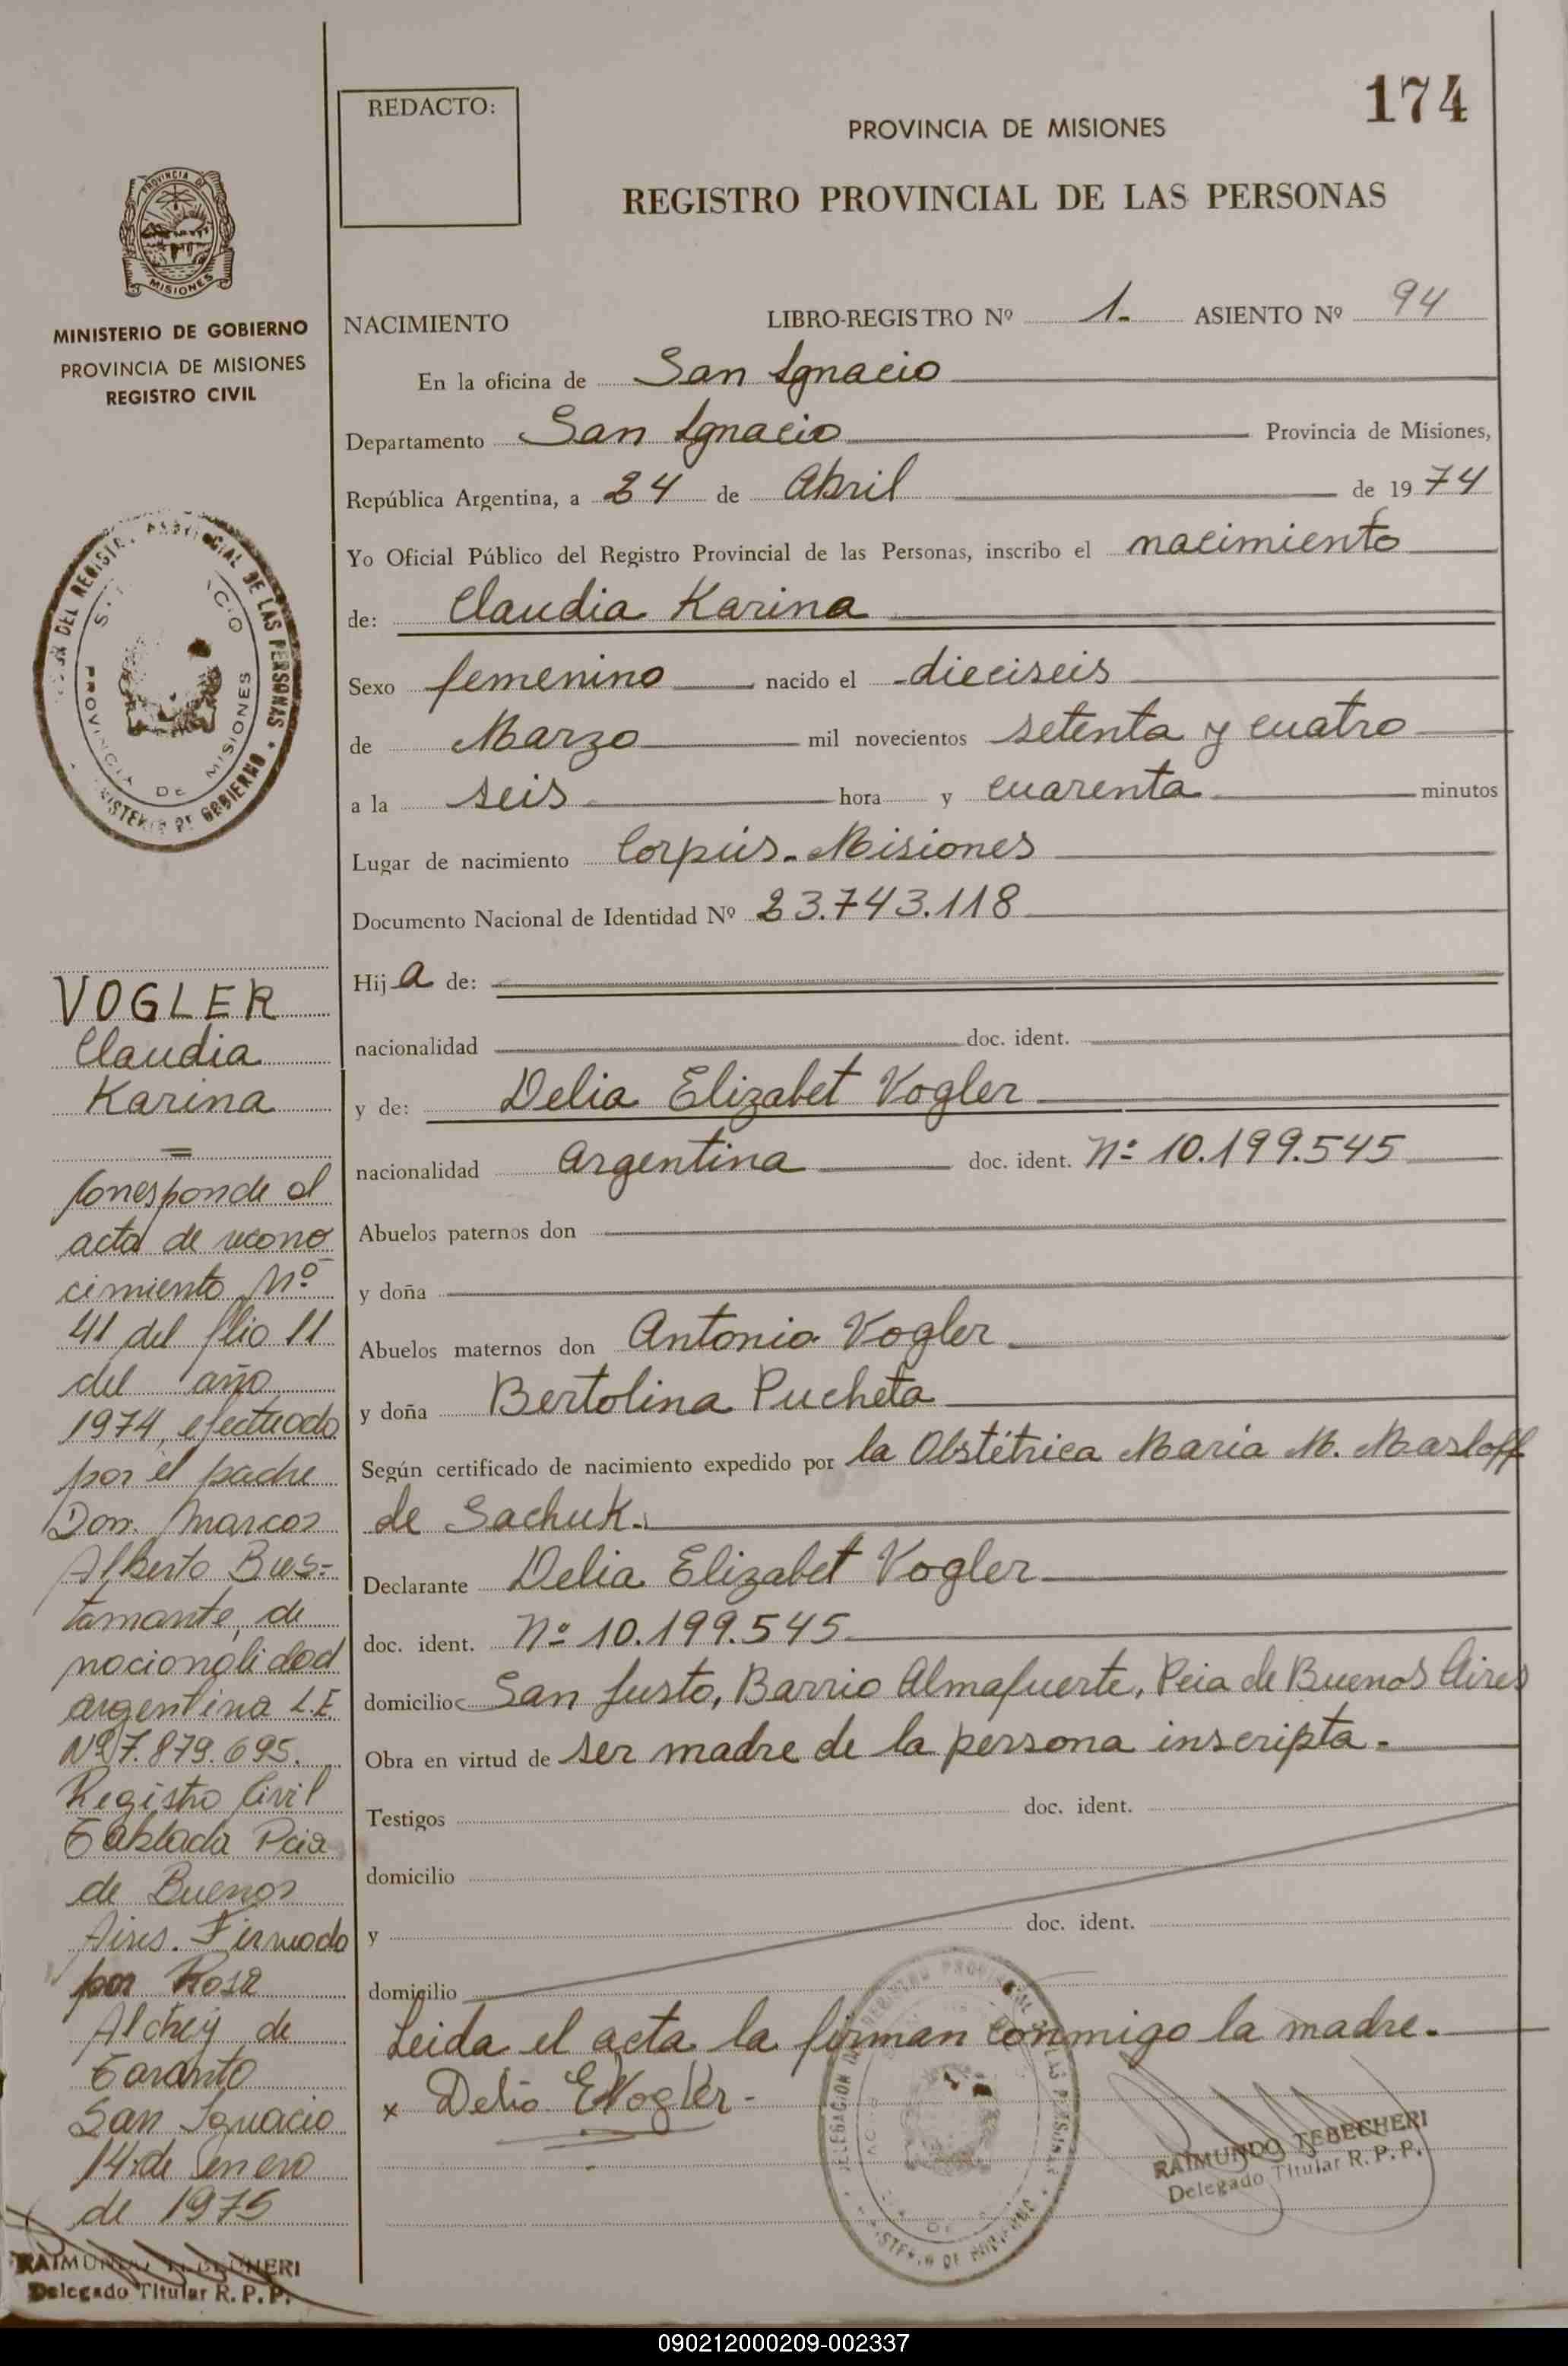 REDACTO:
174
PROVINCIA DE MISIONES
REGISTRO PROVINCIAL DE LAS PERSONAS
PROVINCIA DE
MISIONES
MINISTERIO DE GOBIERNO
PROVINCIA DE MISIONES
REGISTRO CIVIL
NACIMIENTO LIBRO-REGISTRO Nº 1.- ASIENTO Nº 94
En la oficina de San Ignacio
Departamento San Ignacio Provincia de Misiones,
República Argentina, a 24 de Abril de 1974
Yo Oficial Público del Registro Provincial de las Personas, inscribo el nacimiento
de: Claudia Karina
Sexo femenino nacido el dieciseis
de Marzo mil novecientos setenta y cuatro
a la seis hora y cuarenta minutos
Lugar de nacimiento Corpús.- Misiones
Documento Nacional de Identidad Nº 23.743.118
Hij a de:
nacionalidad doc. ident.
y de: Delia Elizabet Vogler
nacionalidad Argentina doc. ident. Nº 10.199.545
Abuelos paternos don
y doña
Abuelos maternos don Antonio Vogler
y doña Bertolina Pucheta
Según certificado de nacimiento expedido por la Obstétrica Maria M. Masloff
de Sachuk.
Declarante Delia Elizabet Vogler
doc. ident. Nº 10.199.545
domicilio San Justo, Barrio Almafuerte, Pcia de Buenos Aires
Obra en virtud de ser madre de la persona inscripta.-
Testigos doc. ident.
domicilio
y doc. ident.
domicilio
Leida el acta la firman conmigo la madre.-
x Delia E Vogler-
RAIMUNDO TEBECHERI
Delegado Titular R. P. P.
VOGLER
Claudia
Karina
=
Corresponde al
acta de recono
cimiento Nº
41 del flio 11
del año
1974, efectuado
por el padre
Don. Marcos
Alberto Bus-
tamante, de
nacionalidad
argentina L.E.
Nº 7.879.695.
Registro Civil
Tablada Pcia
de Buenos
Aires. Firmado
por Rosa
de
Taranto
San Ignacio
14 de enero
de 1975
RAIMUNDO TEBECHERI
Delegado Titular R. P. P.
PROVINCIA DE MISIONES
DE LAS PERSONAS
MINISTERIO DE GOBIERNO
090212000209-002337